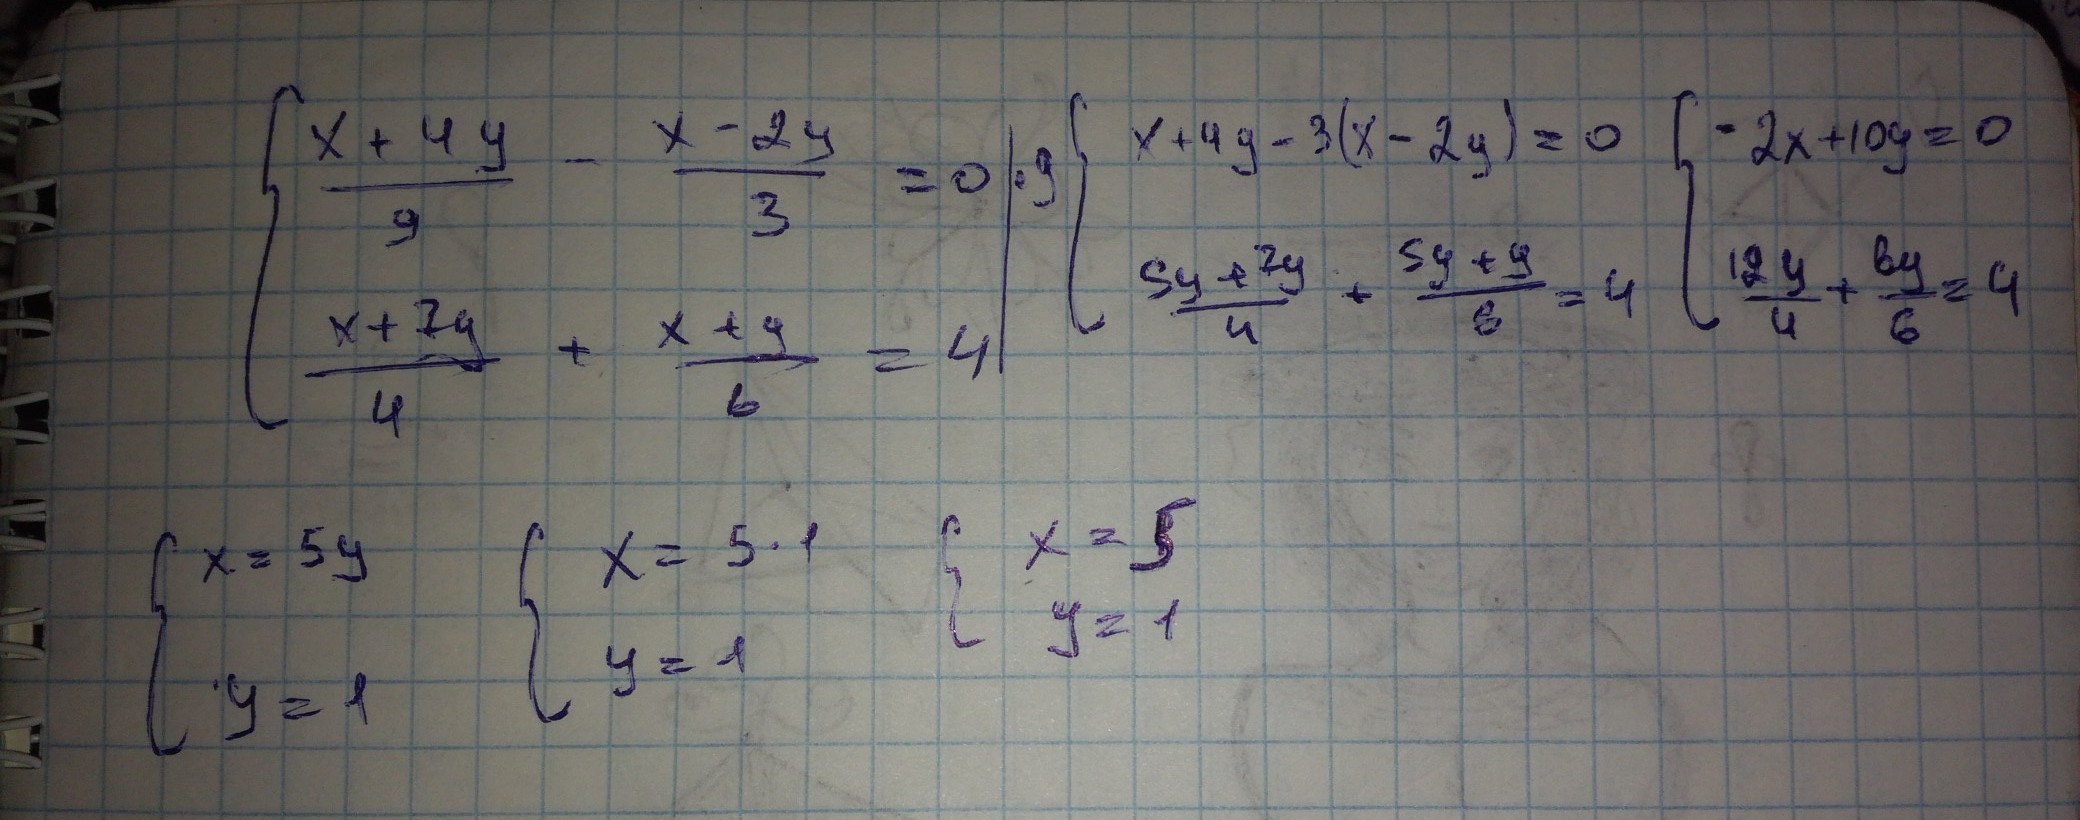 { (x + 4y)/9 - (x - 2y)/3 = 0 | ·9
{ (x + 7y)/4 + (x + y)/6 = 4 |
{ x + 4y - 3(x - 2y) = 0
{ (5y + 7y)/4 + (5y + y)/6 = 4
{ -2x + 10y = 0
{ 12y/4 + 6y/6 = 4
{ x = 5y
{ y = 1
{ x = 5·1
{ y = 1
{ x = 5
{ y = 1